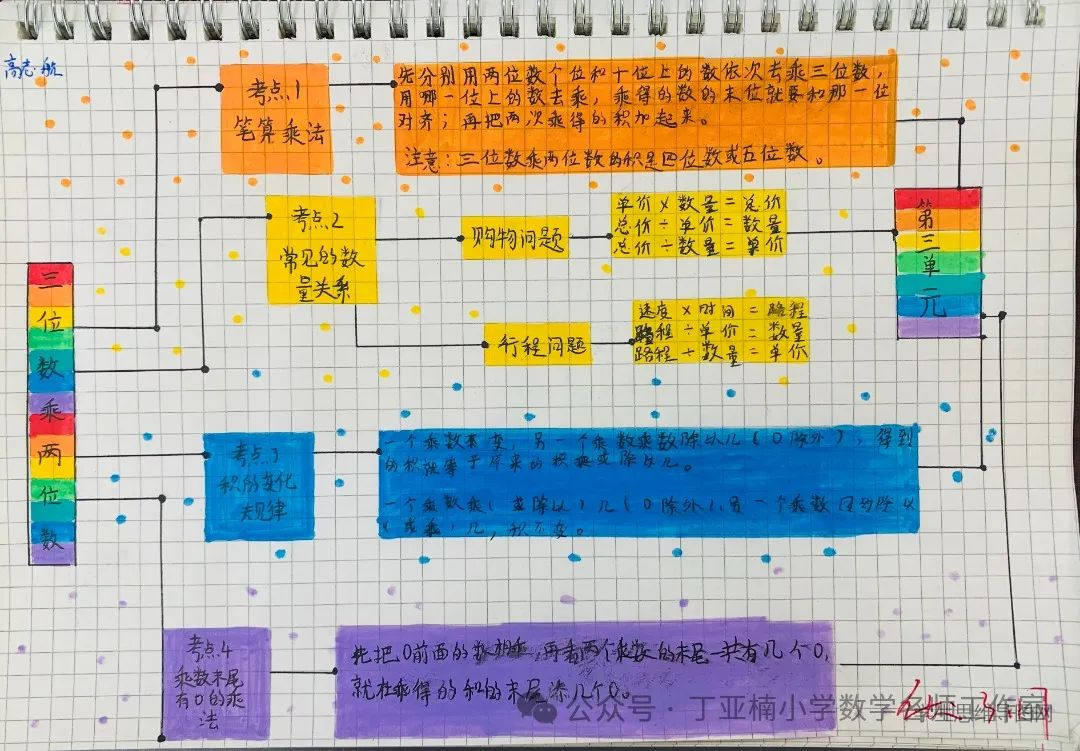 高志航
考点1
笔算乘法
先分别用两位数个位和十位上的数依次去乘三位数,
用哪一位上的数去乘,乘得的数的末位就要和那一位
对齐;再把两次乘得的积加起来。
注意:三位数乘两位数的积是四位数或五位数。
考点2
常见的数
量关系
购物问题
单价×数量=总价
总价÷单价=数量
总价÷数量=单价
行程问题
速度×时间=路程
路程÷单价=数量
路程÷数量=单价
第三单元
三位数乘两位数
考点3
积的变化
规律
一个乘数不变,另一个乘数乘数除以几(0除外),得到
的积就等于原来的积乘或除以几。
一个乘数乘(或除以)几(0除外),另一个乘数因为除以
(或乘)几,积不变。
考点4
乘数末尾
有0的乘
法
先把0前面的数相乘,再看两个乘数的末尾一共有几个0,
就在乘得的和的末尾添几个0。
公众号·丁亚楠小学数学名师工作室